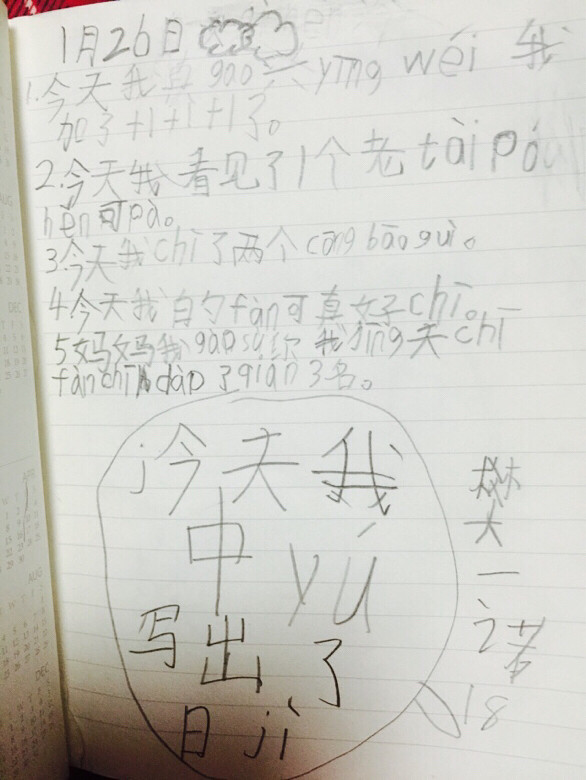 1月26日
1.今天我真gao兴yīng wéi 我
加了+1+1+1了。
2.今天我看见了1个老tài pó
hěn可pà。
3.今天我chī了两个cōng bāo guì。
4今天我自勺fàn可真好chī。
5妈妈我gào sù你我jīng天chī
fàn chī dào了qián3名。
今天我
中yú
写出了
日jì